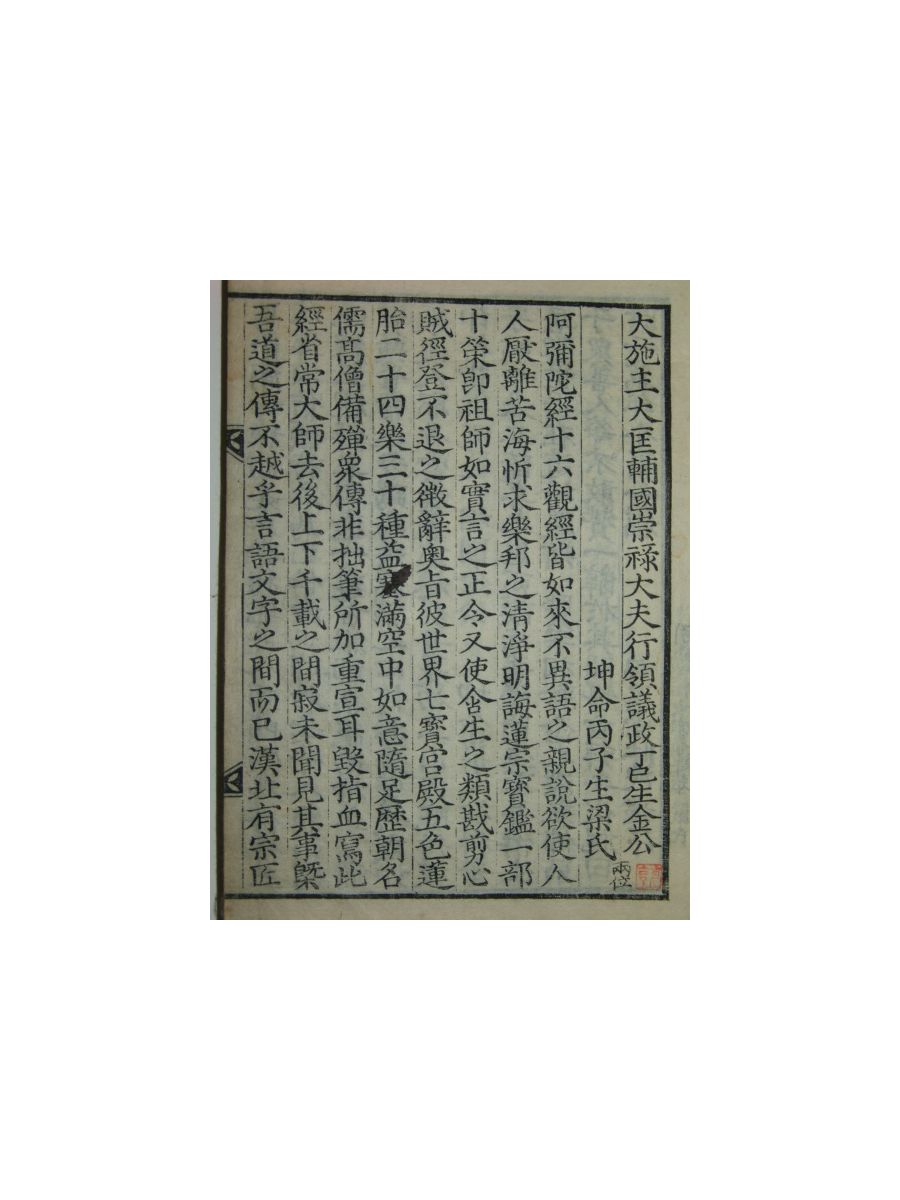 大施主大匡輔國崇祿大夫行領議政丁巳生金公
坤命丙子生梁氏
兩位
阿彌陀經十六觀經皆如來不異語之親說欲使人
人厭離苦海忻求樂邦之清淨明誨蓮宗寶鑑一部
十策卽祖師如實言之正令又使含生之類戡剪心
賊徑登不退之徵辭奧旨彼世界七寶宮殿五色蓮
胎二十四樂三十種益塞滿空中如意隨足歷朝名
儒高僧備殫衆傳非拙筆所加重宣耳毀指血寫此
經省常大師去後上下千載之間寂未聞見其事槩
吾道之傳不越乎言語文字之間而已漢址有宗匠